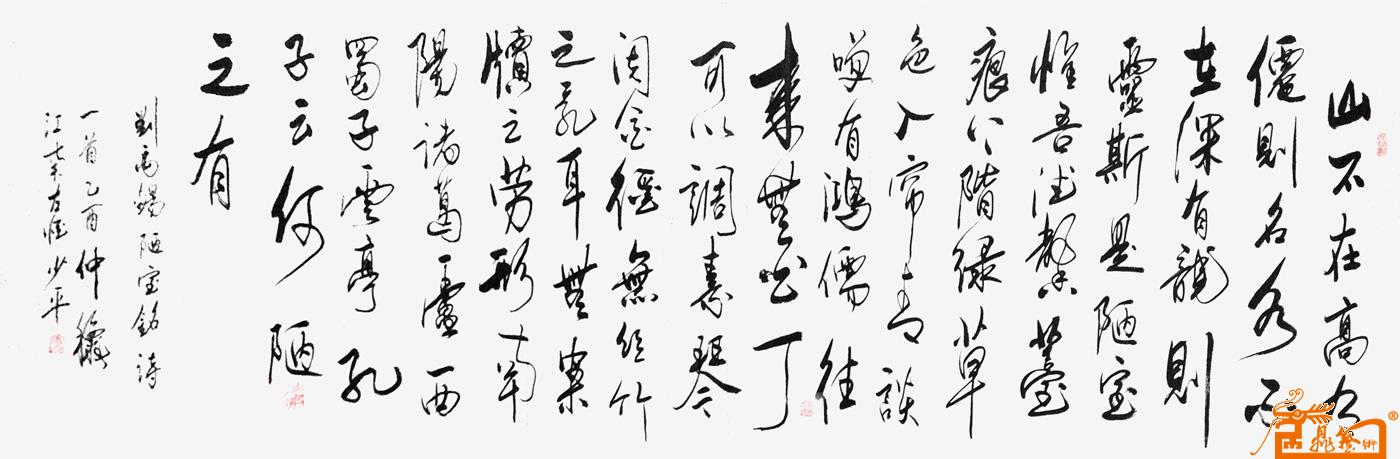 山不在高有
僊則名水不
在深有龍則
靈斯是陋室
惟吾德馨苔
痕上階綠草
色入帘青談
笑有鴻儒往
來無白丁
可以調素琴
閱金經無絲竹
之亂耳無案
牘之勞形南
陽諸葛廬西
蜀子雲亭孔
子云何陋
之有
劉禹錫陋室銘詩
一首乙酉仲龝
江左恆少平